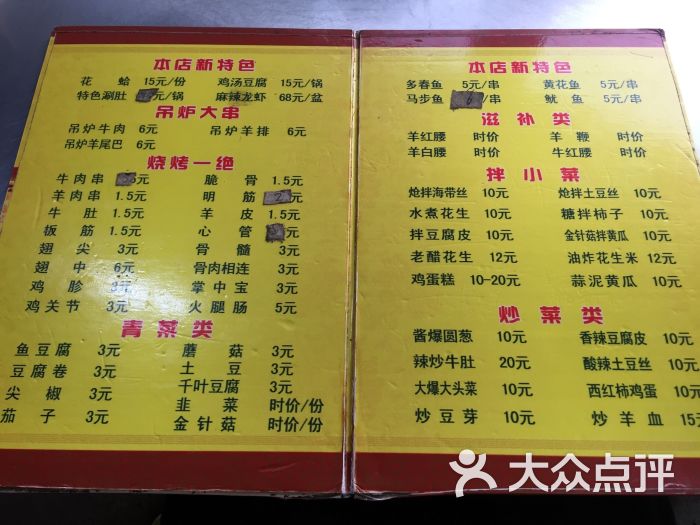 本店新特色
花蛤 15元/份 鸡汤豆腐 15元/锅
特色涮肚 元/锅 麻辣龙虾 68元/盆
吊炉大串
吊炉牛肉 6元 吊炉羊排 6元
吊炉羊尾巴 6元
烧烤一绝
牛肉串 元 脆骨 1.5元
羊肉串 1.5元 明筋 2
牛肚 1.5元 羊皮 1.5元
板筋 1.5元 心管 元
翅尖 3元 骨髓 3元
翅中 6元 骨肉相连 3元
鸡胗 3元 掌中宝 3元
鸡关节 3元 火腿肠 5元
青菜类
鱼豆腐 3元 蘑菇 3元
豆腐卷 3元 土豆 3元
尖椒 3元 千叶豆腐 3元
茄子 3元 韭菜 时价/份
金针菇 时价/份
本店新特色
多春鱼 5元/串 黄花鱼 5元/串
马步鱼 6 /串 鱿鱼 5元/串
滋补类
羊红腰 时价 羊鞭 时价
羊白腰 时价 牛红腰 时价
拌小菜
炝拌海带丝 10元 炝拌土豆丝 10元
水煮花生 10元 糖拌柿子 10元
拌豆腐皮 10元 金针菇拌黄瓜 10元
老醋花生 12元 油炸花生米 12元
鸡蛋糕 10-20元 蒜泥黄瓜 10元
炒菜类
酱爆圆葱 10元 香辣豆腐皮 10元
辣炒牛肚 20元 酸辣土豆丝 10元
大爆大头菜 10元 西红柿鸡蛋 10元
炒豆芽 10元 炒羊血 15元
大众点评